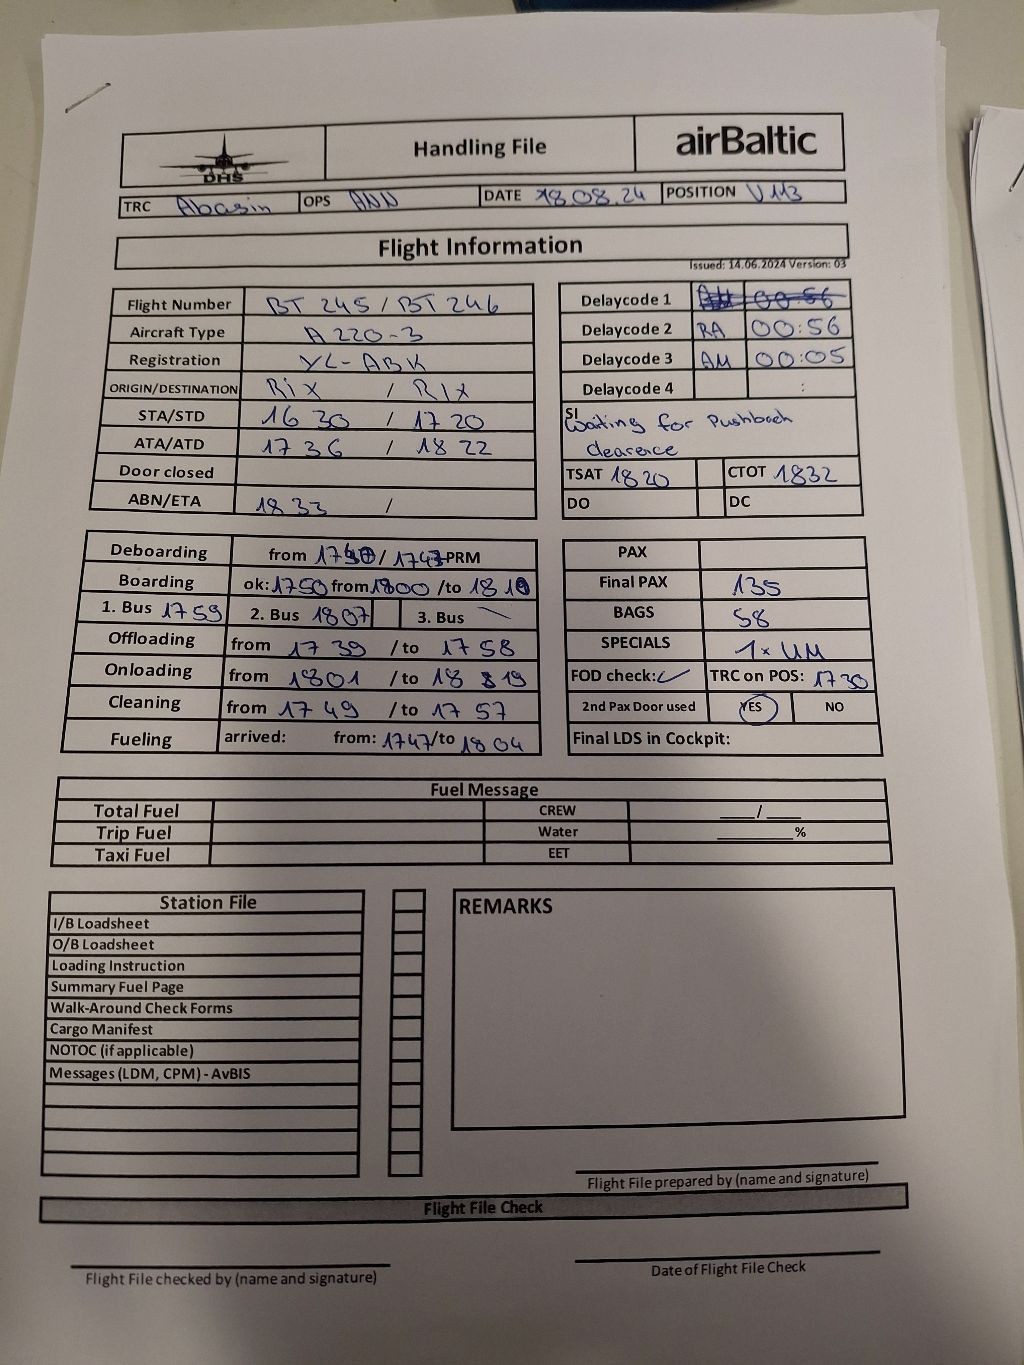 DHS
Handling File
airBaltic
TRC Abasin OPS ANN DATE 18.08.24 POSITION V113
Flight Information
Issued: 14.06.2024 Version: 03
Flight Number BT 245 / BT 246
Aircraft Type A 220-3
Registration YL-ABK
ORIGIN/DESTINATION RIX / RIX
STA/STD 16 30 / 17 20
ATA/ATD 17 36 / 18 22
Door closed
ABN/ETA 18 33 /
Delaycode 1 00:56
Delaycode 2 RA 00:56
Delaycode 3 AM 00:05
Delaycode 4 :
SI
Waiting for Pushback
clearence
TSAT 1820 CTOT 1832
DO DC
Deboarding from / PRM
Boarding ok: 1750 from 1800 /to
1. Bus 1759 2. Bus 1807 3. Bus
Offloading from 17 39 /to 17 58
Onloading from 1801 /to 18 19
Cleaning from 17 49 /to 17 57
Fueling arrived: from: 1747/to 1804
PAX
Final PAX 135
BAGS 58
SPECIALS 1x UM
FOD check: ✓ TRC on POS: 1730
2nd Pax Door used YES NO
Final LDS in Cockpit:
Fuel Message
Total Fuel CREW ____/____
Trip Fuel Water ________%
Taxi Fuel EET
Station File
I/B Loadsheet
O/B Loadsheet
Loading Instruction
Summary Fuel Page
Walk-Around Check Forms
Cargo Manifest
NOTOC (if applicable)
Messages (LDM, CPM) - AvBIS
REMARKS
Flight File prepared by (name and signature)
Flight File Check
Flight File checked by (name and signature)
Date of Flight File Check